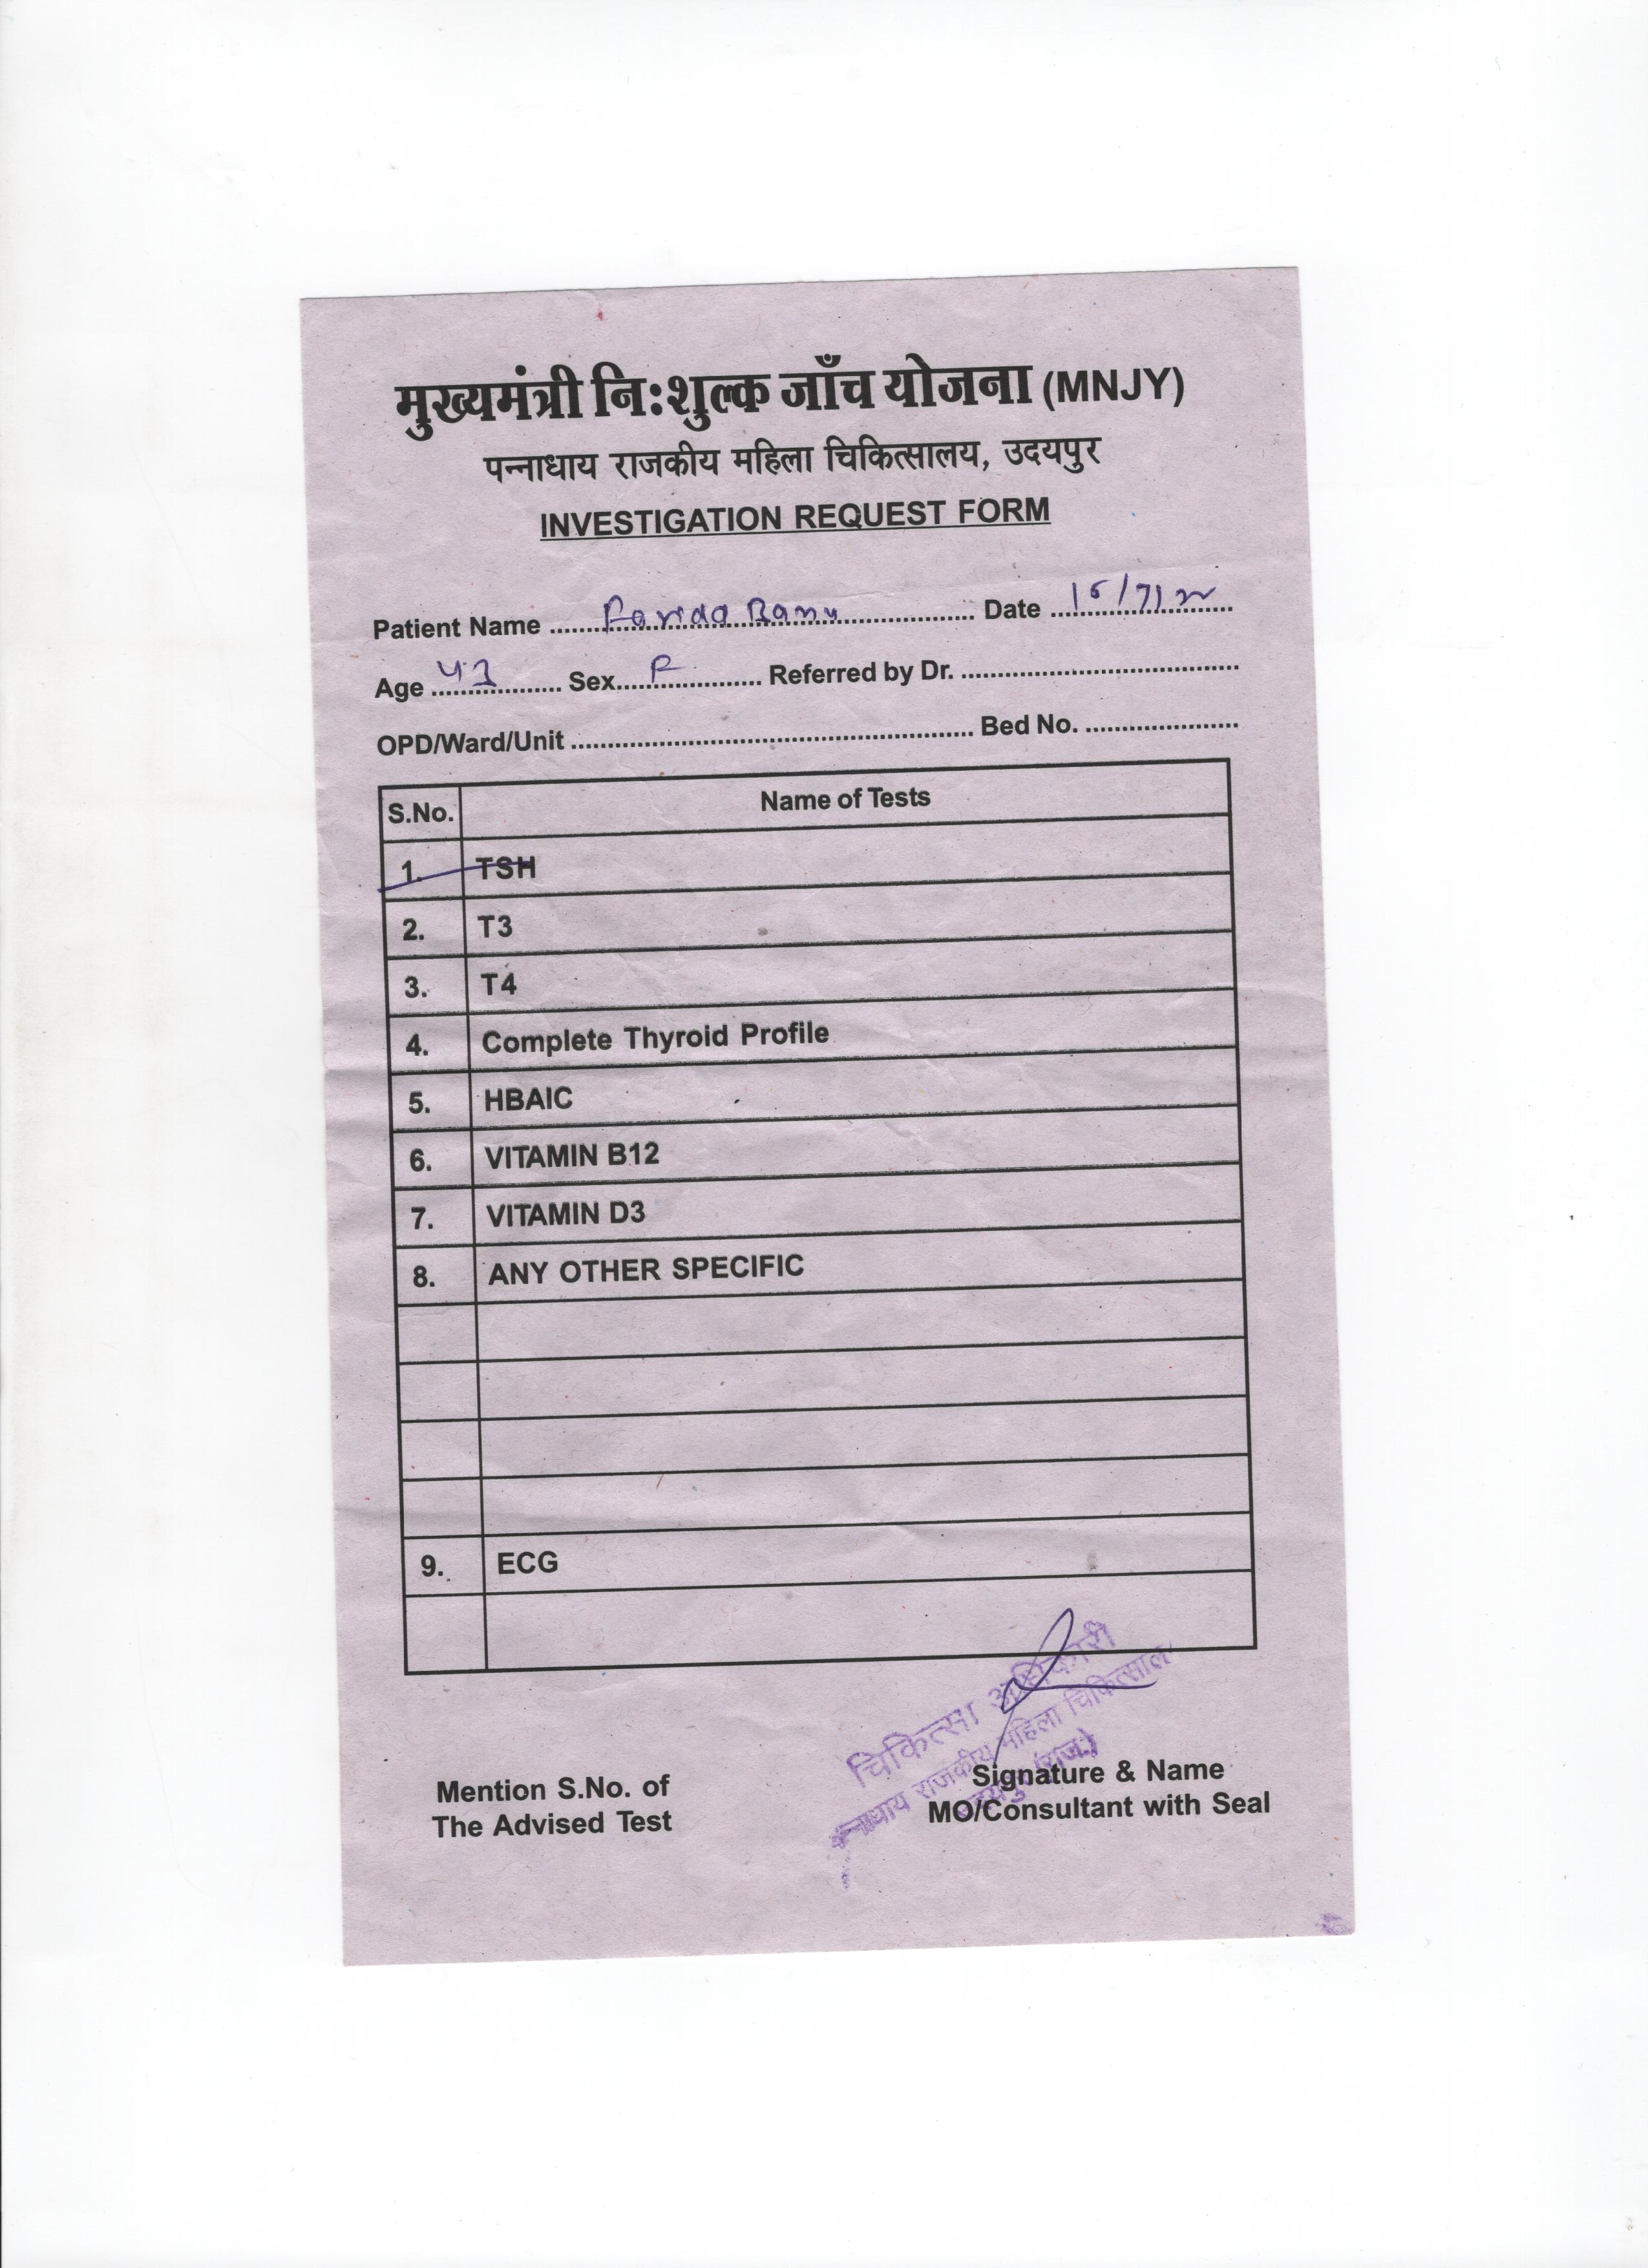 मुख्यमंत्री नि:शुल्क जाँच योजना (MNJY)
पन्नाधाय राजकीय महिला चिकित्सालय, उदयपुर
INVESTIGATION REQUEST FORM
Patient Name Farida Banu Date
Age 43 Sex F Referred by Dr.
OPD/Ward/Unit Bed No.
S.No. Name of Tests
1. TSH
2. T3
3. T4
4. Complete Thyroid Profile
5. HBAIC
6. VITAMIN B12
7. VITAMIN D3
8. ANY OTHER SPECIFIC
9. ECG
चिकित्सा अधिकारी
राजकीय महिला चिकित्साल
(राज.)
Mention S.No. of
The Advised Test
Signature & Name
MO/Consultant with Seal